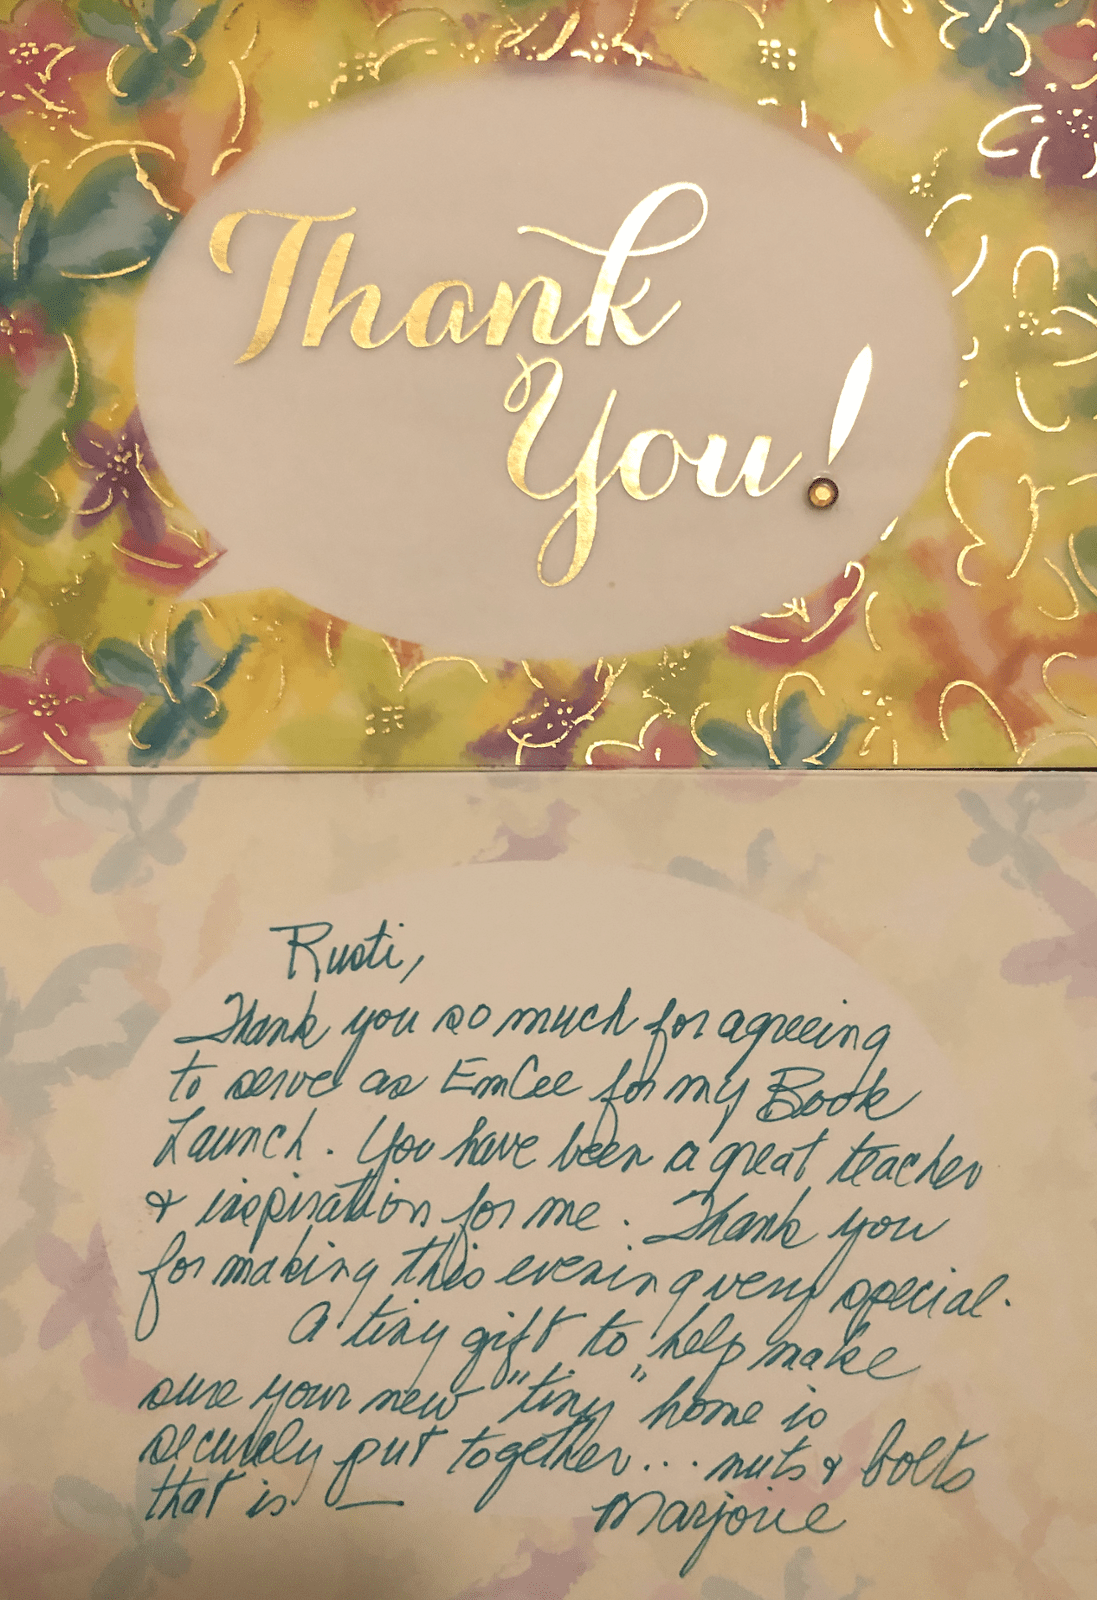 Thank
You!
Rusti,
Thank you so much for agreeing
to serve as EmCee for my Book
Launch. You have been a great teacher
& inspiration for me. Thank you
for making this evening very special.
A tiny gift to help make
sure your new "tiny" home is
securely put together... nuts & bolts
that is —
Marjorie